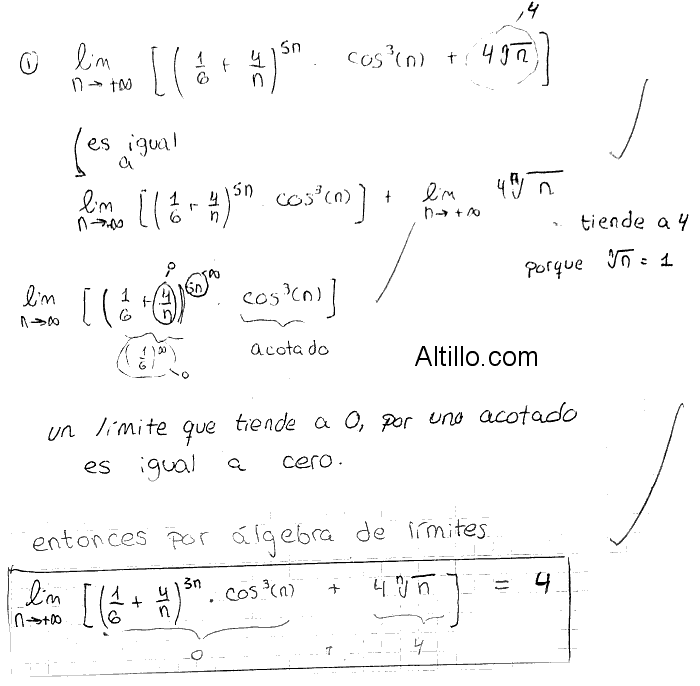 ① lim n→+∞ [(1/6 + 4/n)^5n · cos³(n) + 4 ⁿ√n] → 4
es igual a
lim n→+∞ [(1/6 + 4/n)^5n · cos³(n)] + lim n→+∞ 4 ⁿ√n
tiende a 4
porque ⁿ√n = 1
lim n→∞ [(1/6 + 4/n →0)^5n →∞ · cos³(n)]
(1/6)^∞ → 0 acotado
Altillo.com
un límite que tiende a 0, por uno acotado
es igual a cero.
entonces por álgebra de límites
lim n→+∞ [(1/6 + 4/n)^3n · cos³(n) + 4 ⁿ√n] = 4
0 + 4